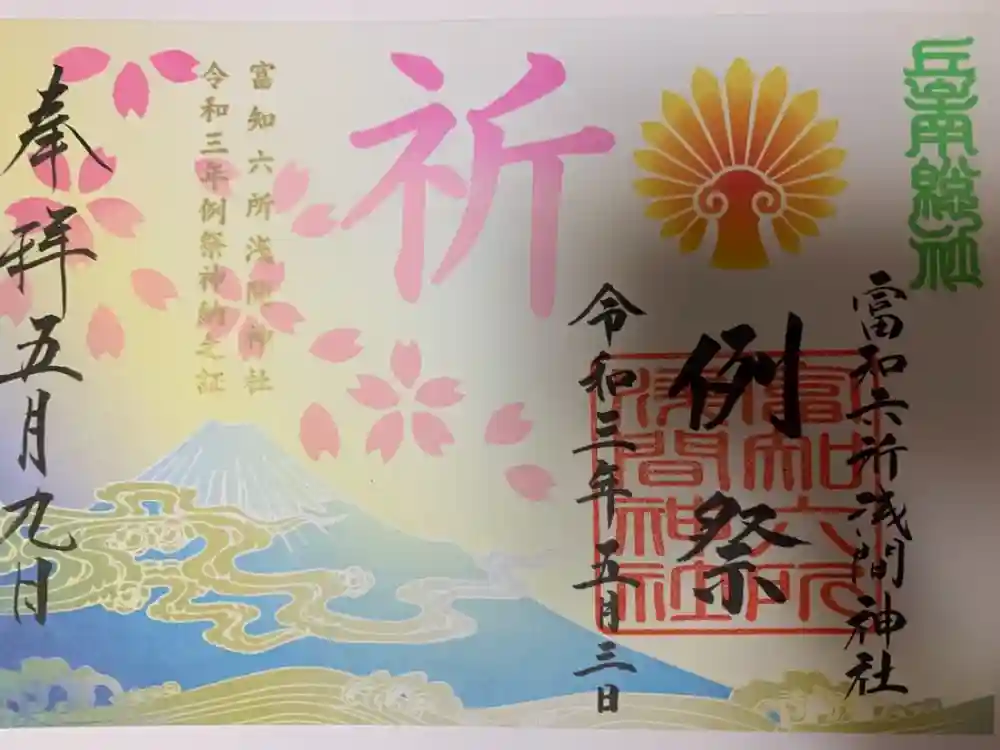 岳南総社
富知六所浅間神社
例祭
富知六所浅間神社
令和三年五月三日
祈
富知六所浅間神社
令和三年例祭神納之証
奉拝五月九日